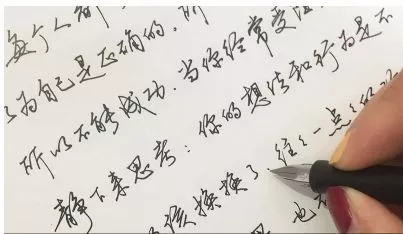 每个人都
为自己是正确的.所
所以不能成功.当你经常受
静下来思考:你的想法和行为是不
该换换了 往往一点
也